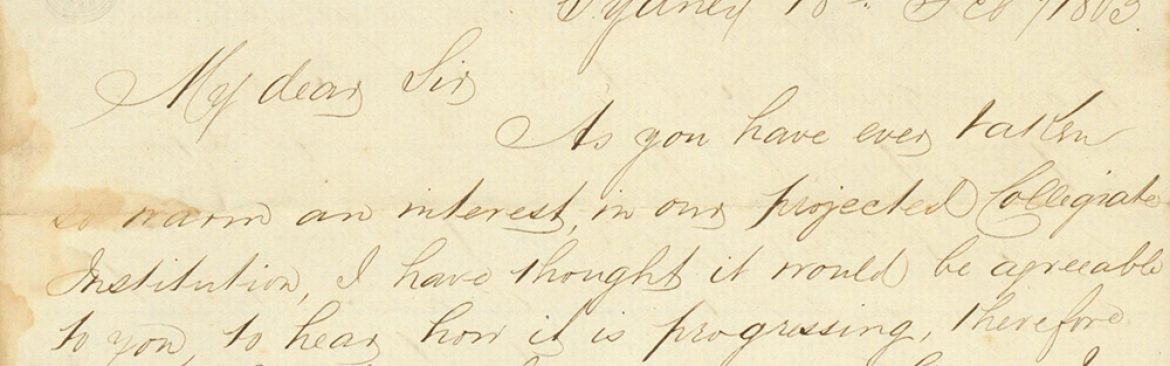 Sydney 18th Feb /1863.
My dear Sir
As you have ever taken
so warm an interest, in our projected Collegiate
Institution, I have thought it would be agreeable
to you, to hear how it is progressing, therefore